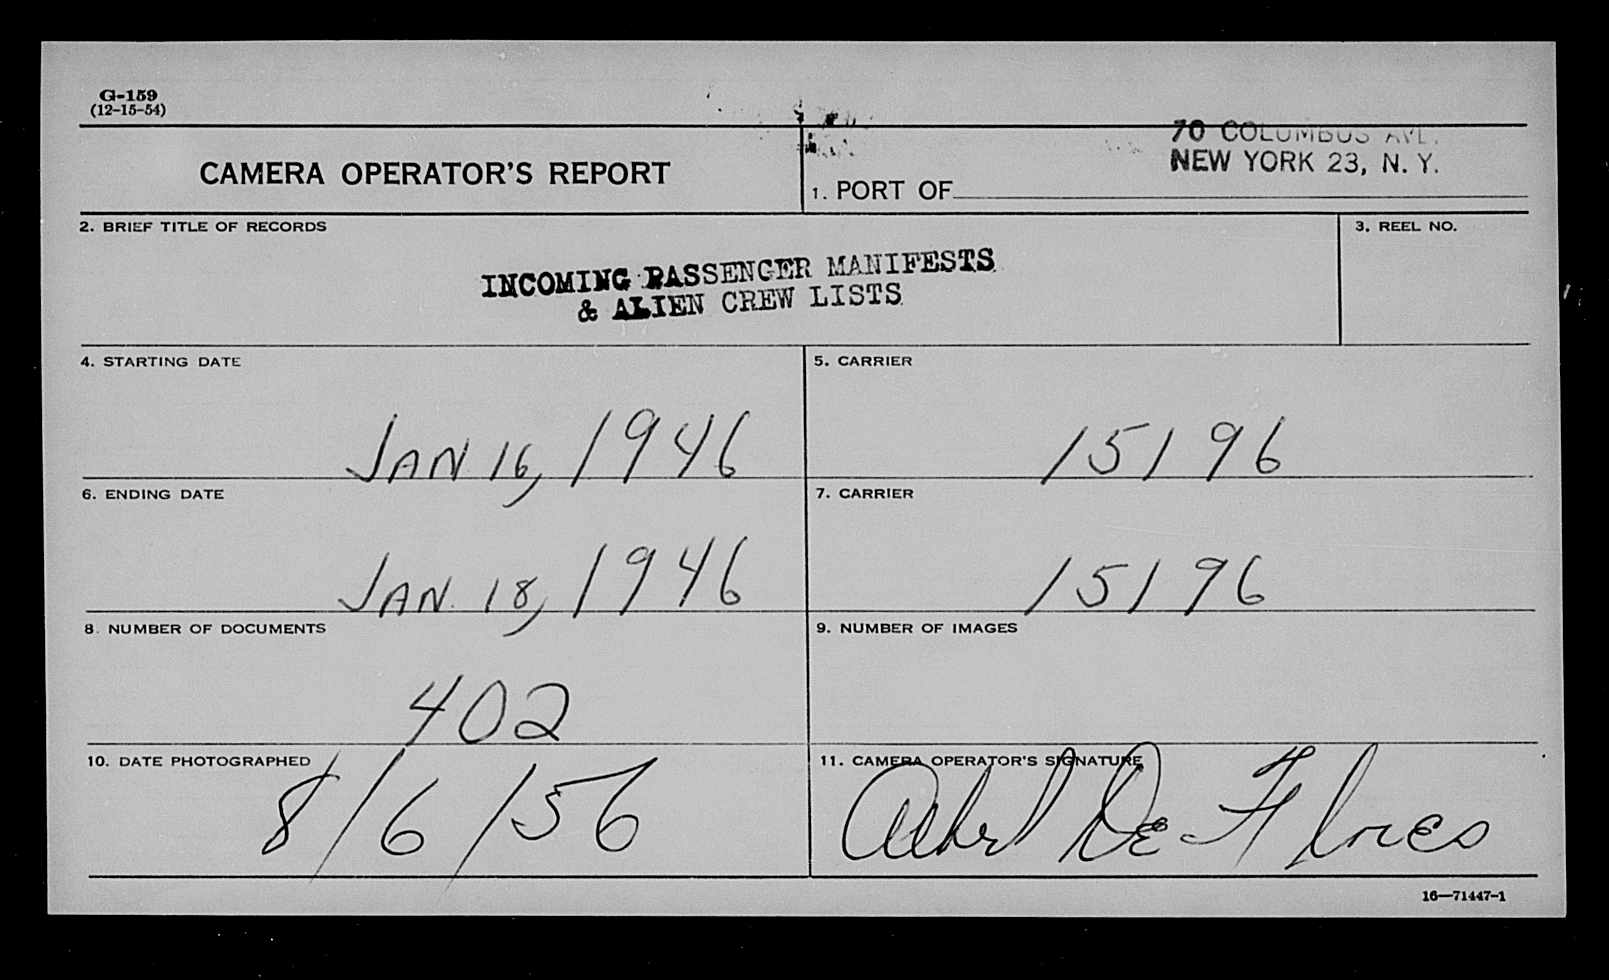 G-159
(12-15-54)
70 COLUMBUS AVE.
NEW YORK 23, N. Y.
CAMERA OPERATOR'S REPORT
1. PORT OF
2. BRIEF TITLE OF RECORDS
3. REEL NO.
INCOMING PASSENGER MANIFESTS
& ALIEN CREW LISTS
4. STARTING DATE
5. CARRIER
JAN 16, 1946
15196
6. ENDING DATE
7. CARRIER
JAN. 18, 1946
15196
8. NUMBER OF DOCUMENTS
9. NUMBER OF IMAGES
402
10. DATE PHOTOGRAPHED
11. CAMERA OPERATOR'S SIGNATURE
8/6/56
De Flores
16—71447-1